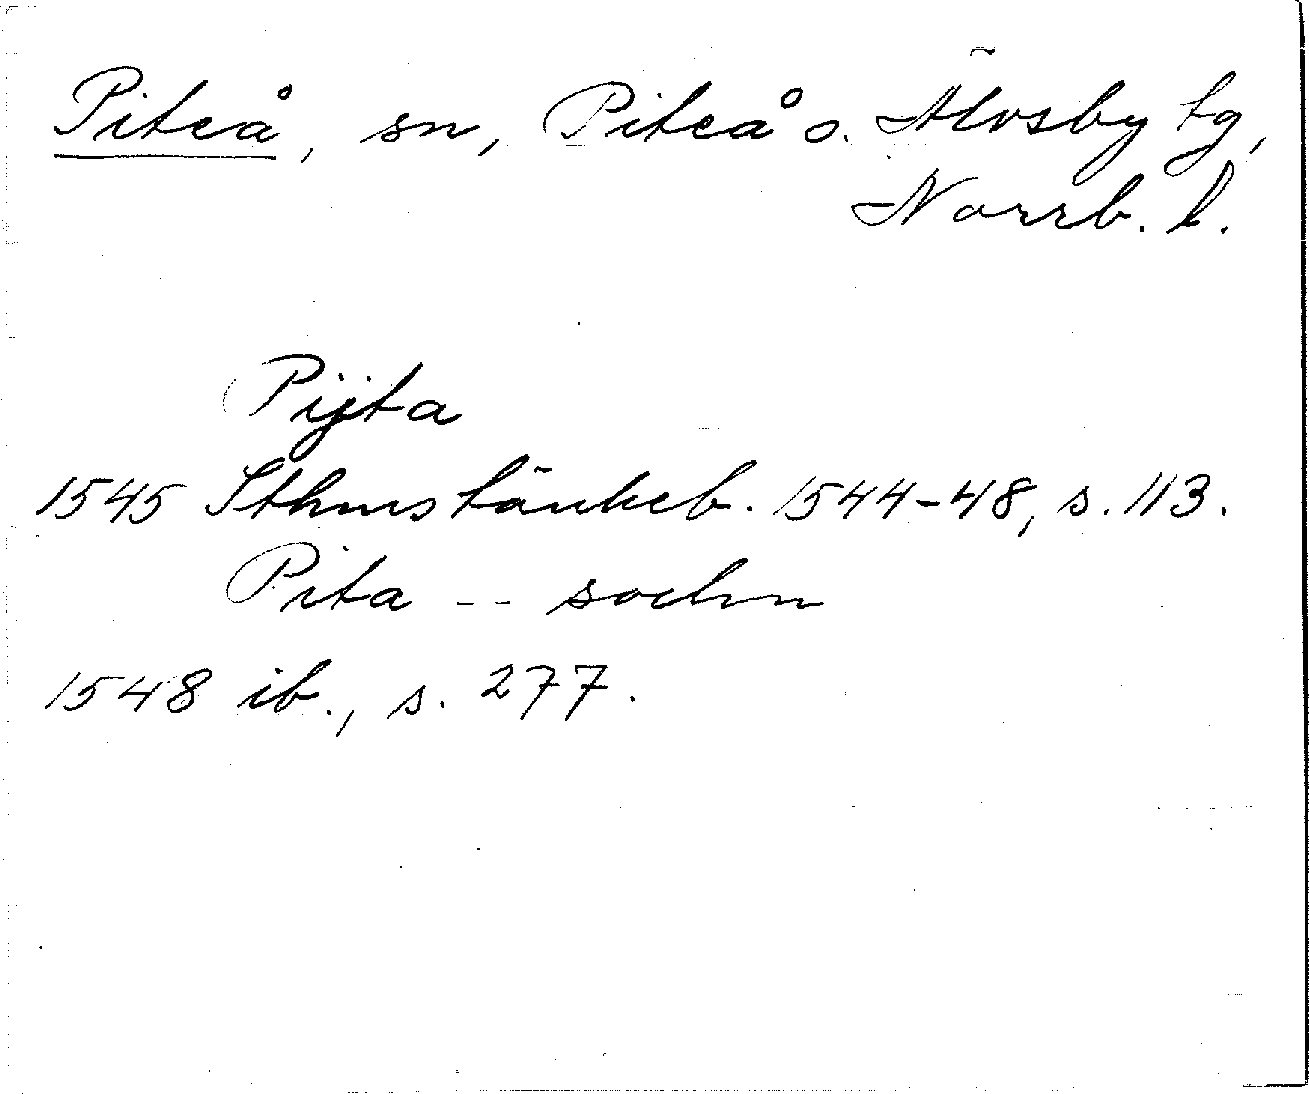 Piteå, sn, Piteå o. Älvsby tg,
Norrb. l.
Pijta
1545 Sthms tänkeb. 1544-48, s. 113.
Pita -- sochn
1548 ib., s. 277.